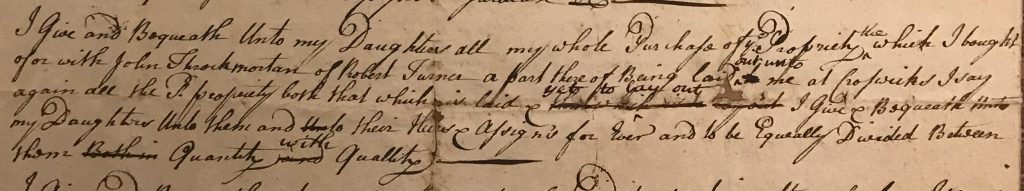 I Give and Bequeath Unto my Daughters all my whole Purchase of ye Propriety the which I bought
of or with John Throckmortan of Robert Turner a part there of Being laid out unto me at Croswicks I say
again all the Sd property both that which is laid & yet to lay out I Give & Bequeath Unto
my Daughters Unto them and Unto their Heirs & Assigns for Ever and to be Equeally Divided Between
them Both in Quantity with and Quallity
I Give and Bequeath